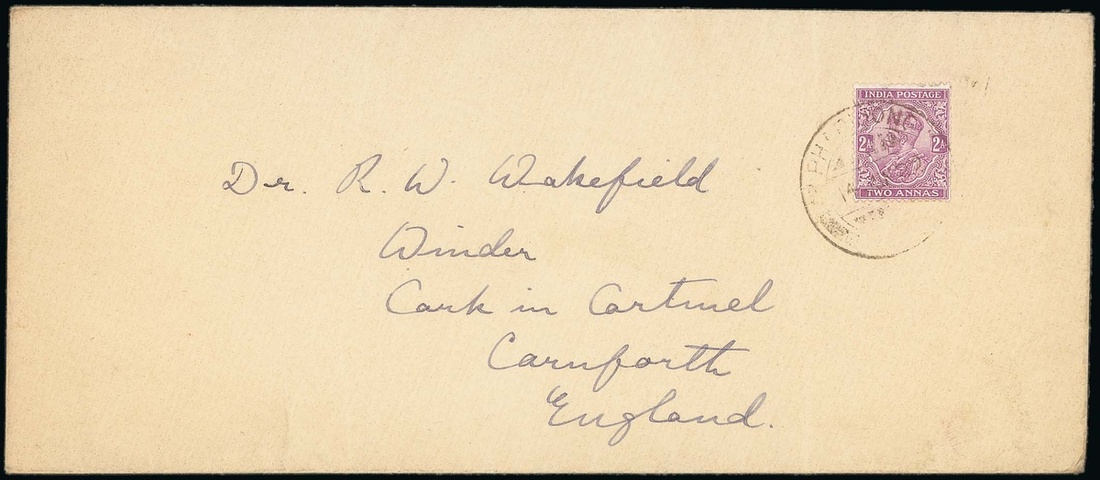 INDIA POSTAGE
2A 2A
TWO ANNAS
Dr. R. W. Wakefield
Winder
Cark in Cartmel
Carnforth
England.